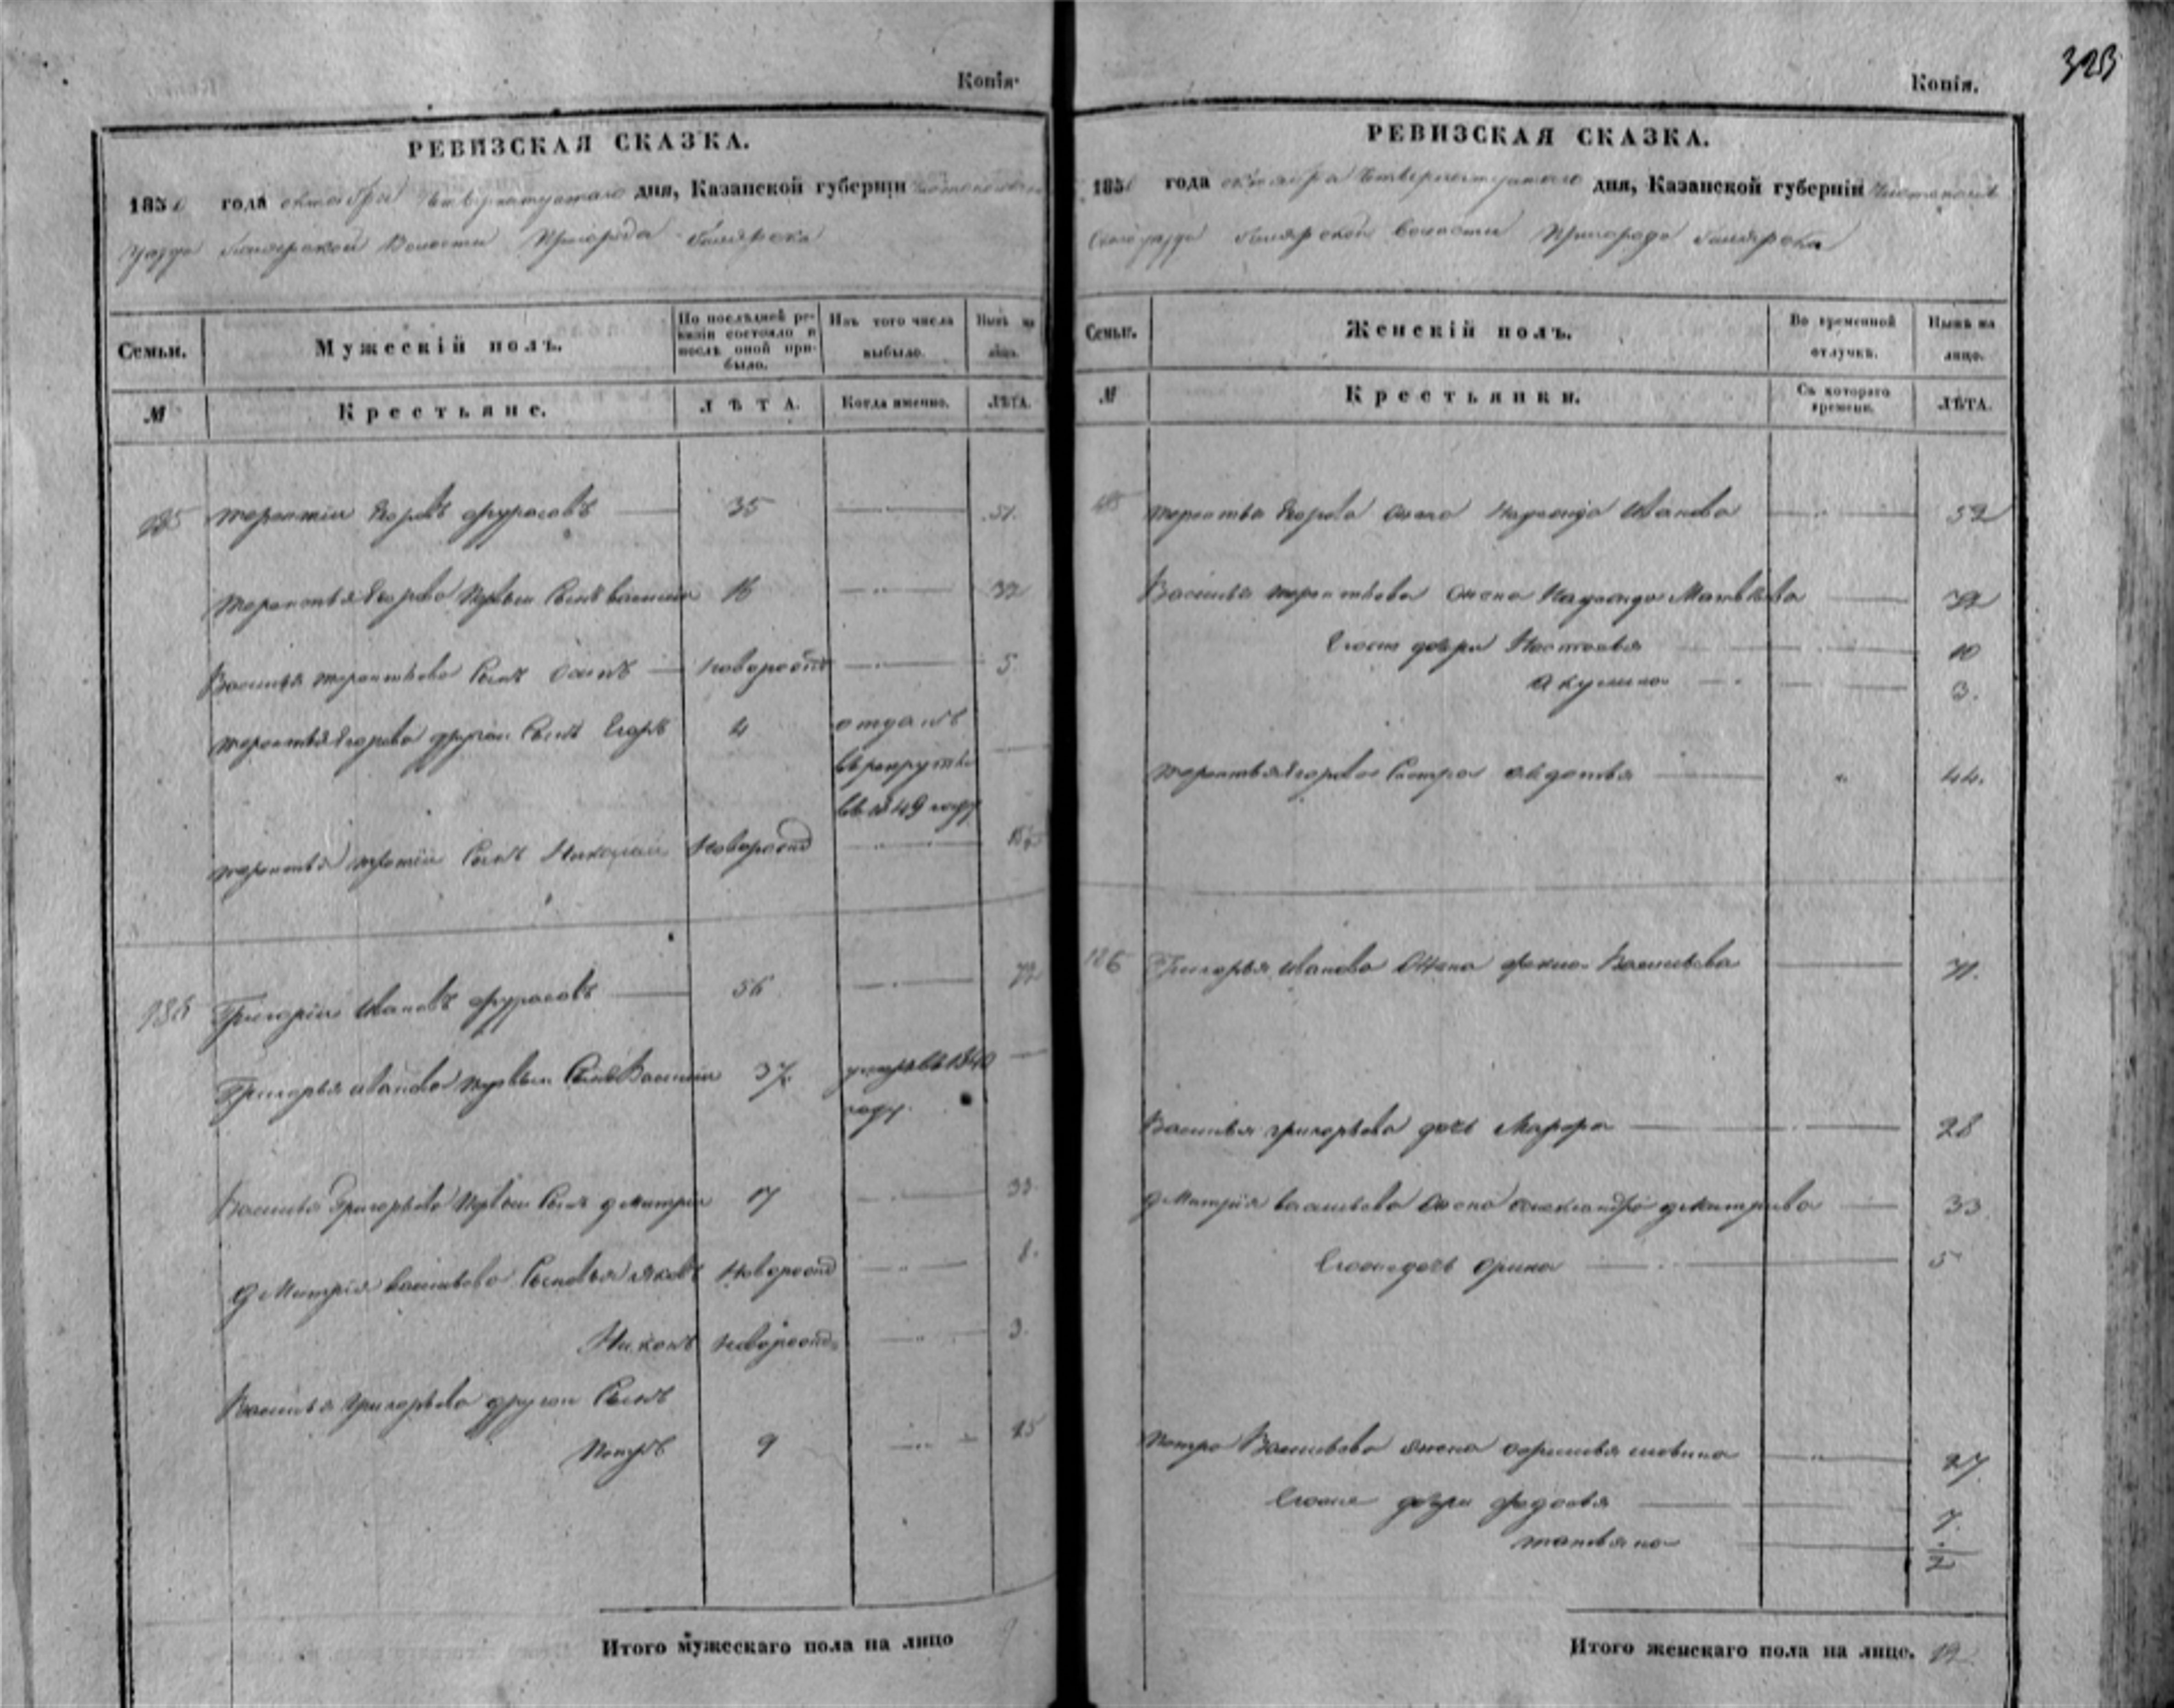 Копія.
РЕВИЗСКАЯ СКАЗКА.
1850 года октября четырнадцатаго дня, Казанской губерніи
уезда Билярской Волости Пригорода Билярска
Семьи.
Мужескій полъ.
По послѣдней ревизіи состояло и послѣ оной прибыло.
Изъ того числа выбыло.
Нынѣ на лицо.
№
Крестьяне.
ЛѢТА.
Когда именно.
ЛѢТА.
Терентій Егоровъ Фурасовъ 35 51.
Терентья Егорова первый Сынъ Василій 16 32
Василья Терентьева Сынъ Осипъ новорожд 5.
Терентья Егорова другой Сынъ Егоръ 4 отданъ
въ рекруты
въ 1849 году
Терентья третій Сынъ Николай новорожд
Григорій Ивановъ Фурасовъ 56 72
Григорья Иванова первый Сынъ Василій 37. умеръ въ 1840
году.
Василья Григорьева первый Сынъ Дмитрій 17 33.
Дмитрія Васильева Сыновья Яковъ новорожд 8.
Никонъ новорожд 3.
Василья Григорьева другой Сынъ
Петръ 9 25
Итого мужескаго пола на лицо 9
323
Копія.
РЕВИЗСКАЯ СКАЗКА.
1850 года октября четырнадцатаго дня, Казанской губерніи
уезда Билярской Волости Пригорода Билярска
Семьи.
Женскій полъ.
Во временной отлучкѣ.
Нынѣ на лицо.
№
Крестьянки.
Съ котораго времени.
ЛѢТА.
Терентья Егорова жена Надежда Иванова 52
Василья Терентьева жена Надежда Матвѣева 32
Егоже дочери Настасья 10
Акулина 3.
Терентья Егорова Сестра Авдотья 44.
186 Григорья Иванова жена Фекла Васильева 71.
Василья Григорьева дочь Марфа 28
Дмитрія Васильева жена Александра Дмитріева 33
Егоже дочь Орина 5
Петра Васильева жена 27.
Егоже дочери Федосья 7.
Татьяна 2
Итого женскаго пола на лицо. 12